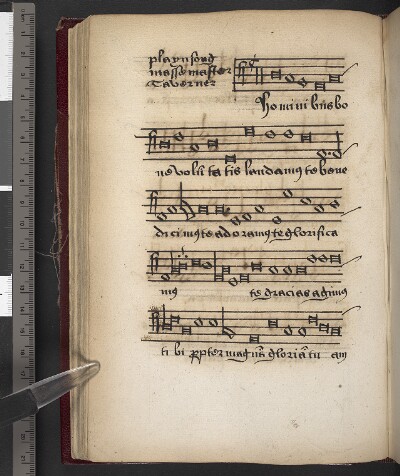 playnsong
masse master
Taverner
Hominibus bo
ne volu ta tis laudamus te bene
di cimus te adoramus te glorifica
mus te gracias agimus
ti bi propter magnam gloriam tu am